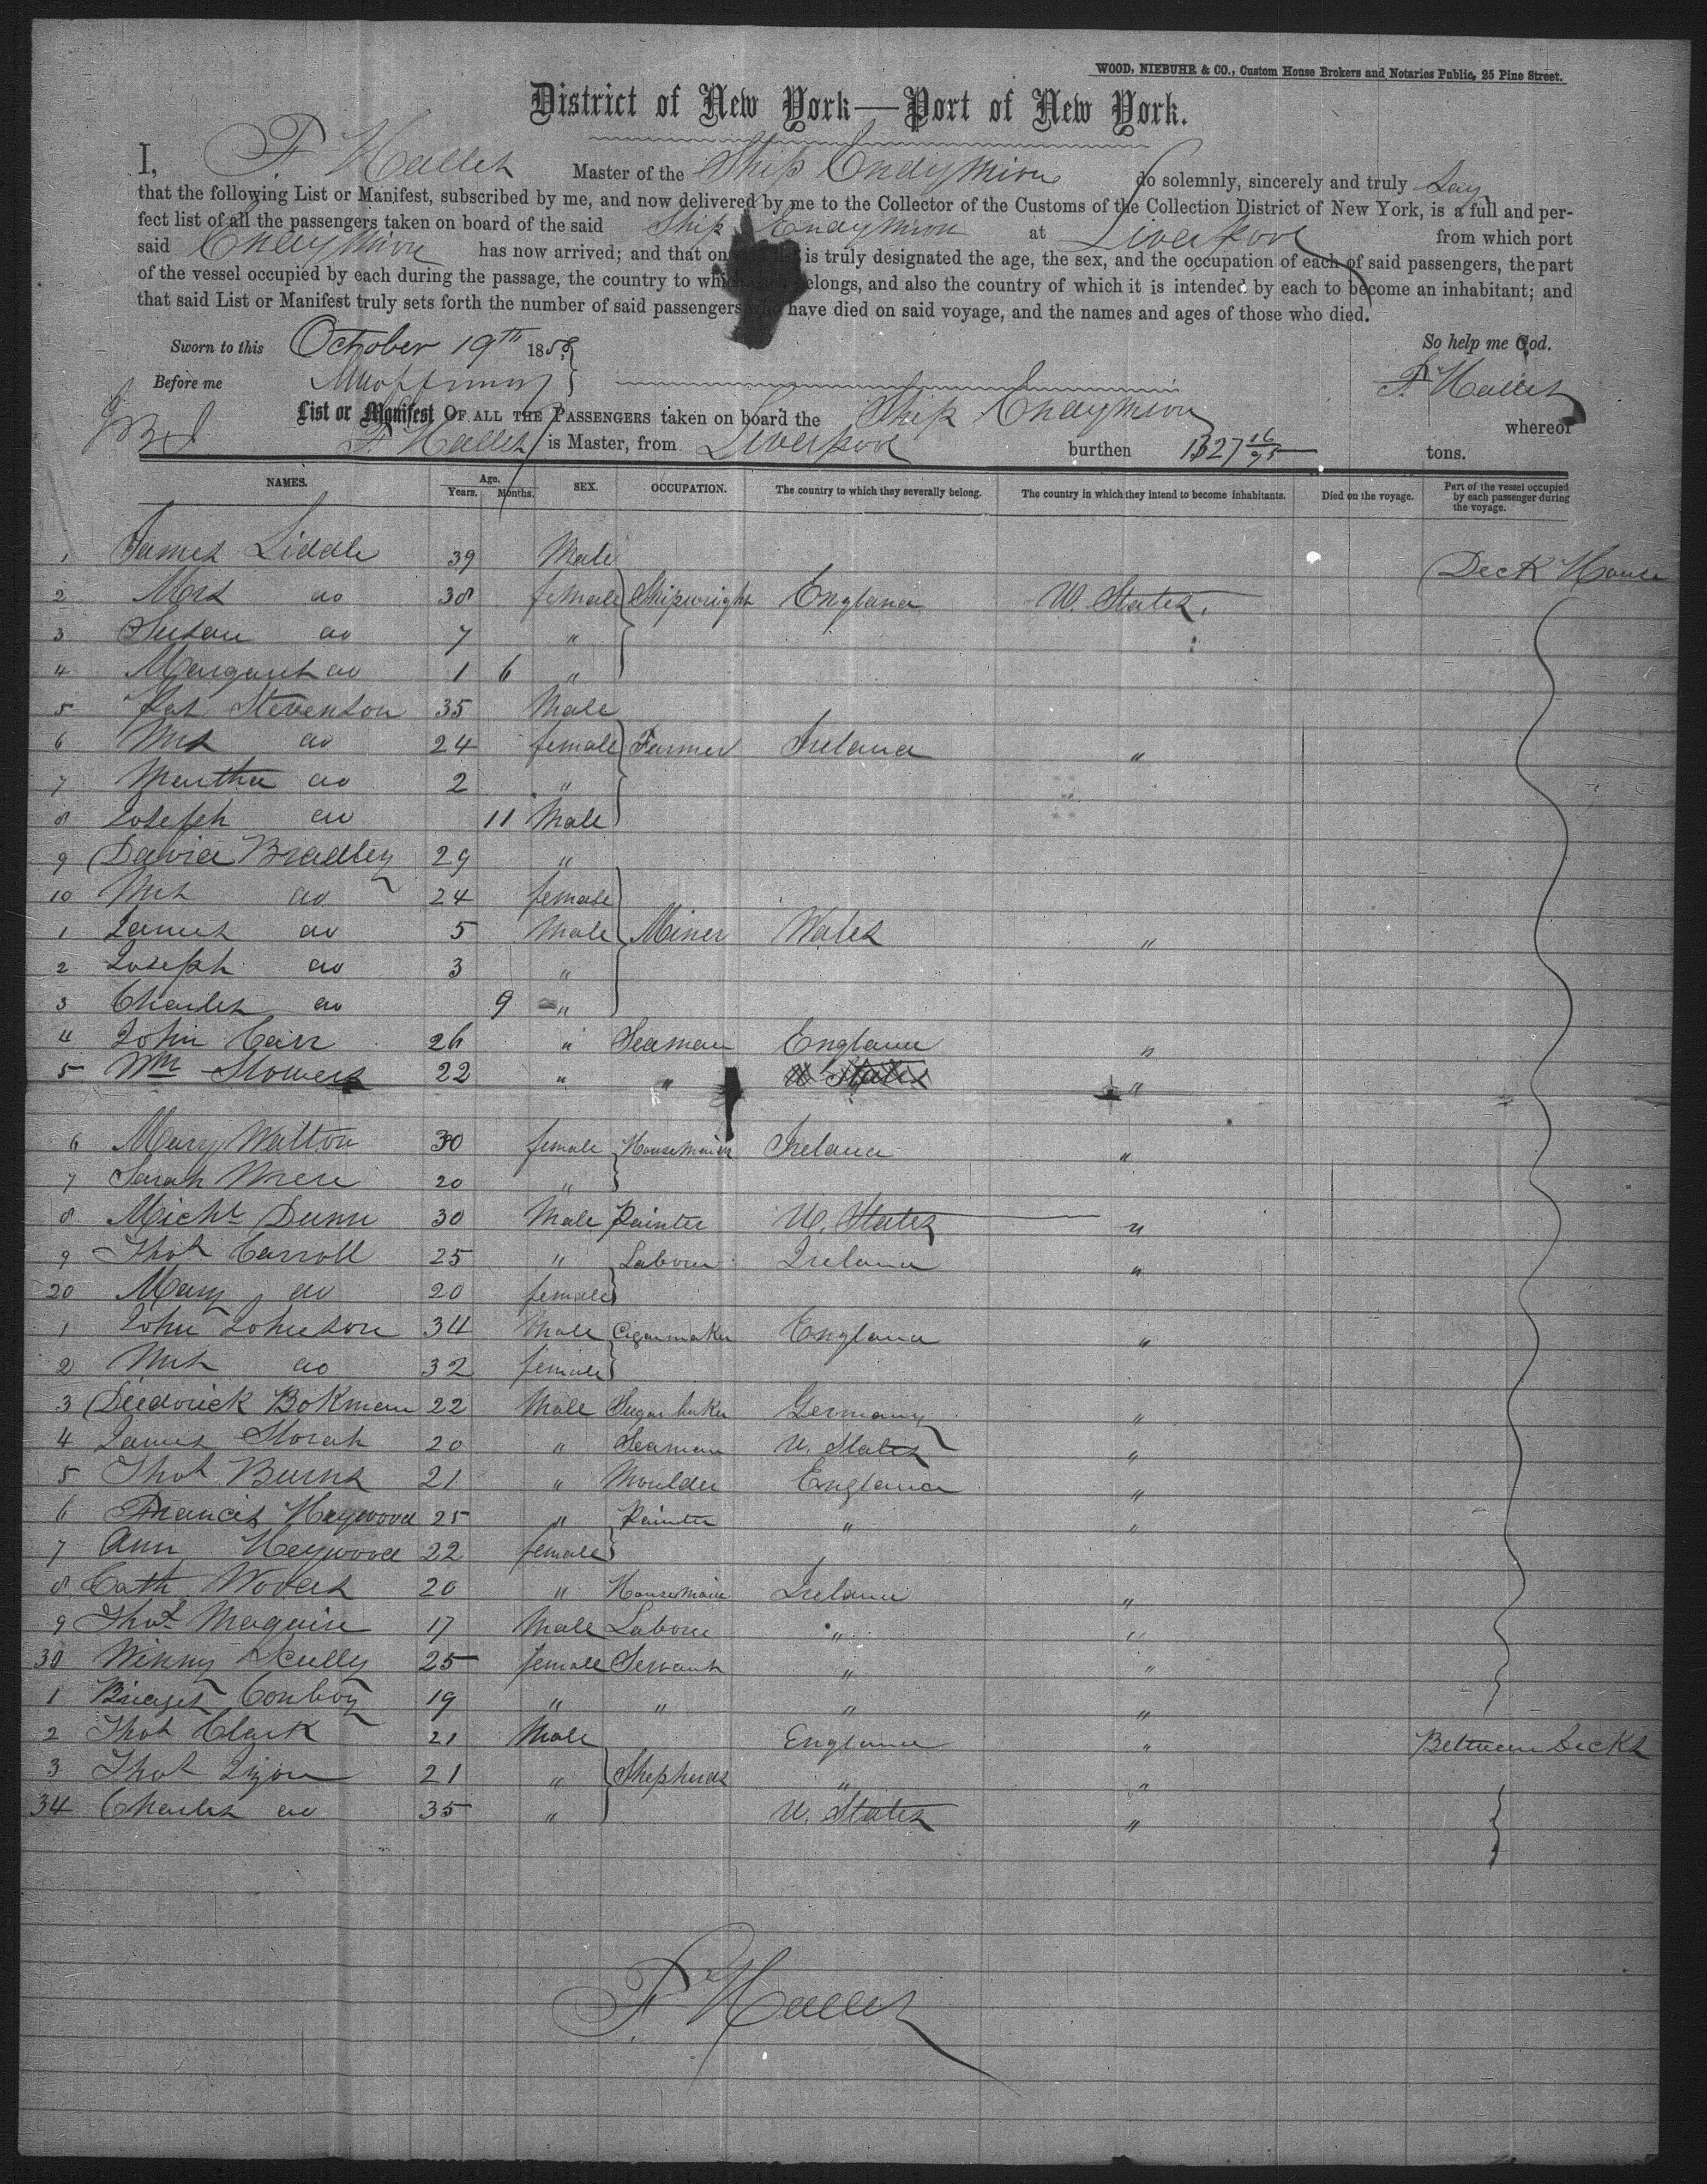 WOOD, NIEBUHR & CO., Custom House Brokers and Notaries Public, 25 Pine Street.
District of New York—Port of New York.
I, F. Hallet Master of the Ship Endymion do solemnly, sincerely and truly Say
that the following List or Manifest, subscribed by me, and now delivered by me to the Collector of the Customs of the Collection District of New York, is a full and per-
fect list of all the passengers taken on board of the said Ship Endymion at Liverpool from which port
said Endymion has now arrived; and that on is truly designated the age, the sex, and the occupation of each of said passengers, the part
of the vessel occupied by each during the passage, the country to which each belongs, and also the country of which it is intended by each to become an inhabitant; and
that said List or Manifest truly sets forth the number of said passengers who have died on said voyage, and the names and ages of those who died.
Sworn to this October 19th 1858 So help me God.
Before me F. Hallet
List or Manifest OF ALL THE PASSENGERS taken on board the Ship Endymion whereof
F. Hallet is Master, from Liverpool burthen 1327 16/95 tons.
NAMES. Age. Years. Months. SEX. OCCUPATION. The country to which they severally belong. The country in which they intend to become inhabitants. Died on the voyage. Part of the vessel occupied by each passenger during the voyage.
1 James Liddle 39 Male Deck House
2 Mrs do 38 female Shipwright England U. States.
3 Susan do 7 "
4 Margaret do 1 6 "
5 Pat Stevenson 35 Male
6 Mrs do 24 female Farmer Ireland "
7 Martha do 2 "
8 Joseph do 11 Male
9 David Bradley 29 "
10 Mrs do 24 female
1 James do 5 Male Miner Wales "
2 Joseph do 3 "
3 Charles do 9 "
4 John Carr 26 " Seaman England "
5 Wm Stowers 22 " " U States "
6 Mary Walton 30 female Housemaids Ireland "
7 Sarah 20 "
8 Michl Dunn 30 Male Painter U. States "
9 Thos Carroll 25 " Laborer Ireland "
20 Mary do 20 female
1 John Johnson 34 Male Cigarmaker England "
2 Mrs do 32 female
3 Diedrick Bokman 22 Male Sugar baker Germany "
4 James Storah 20 " Seaman U. States "
5 Thos Burns 21 " Moulder England "
6 Francis Haywood 25 " Painter " "
7 Ann Heywood 22 female
8 Cath Woods 20 " Housemaid Ireland "
9 Thos Maguire 17 Male Laborer " "
30 Winny Scully 25 female Servant " "
1 Bridget Conboy 19 " " " "
2 Thos Clark 21 Male England " Between decks
3 Thos 21 " Shepherds " "
34 Charles do 35 " U. States "
F. Hallet